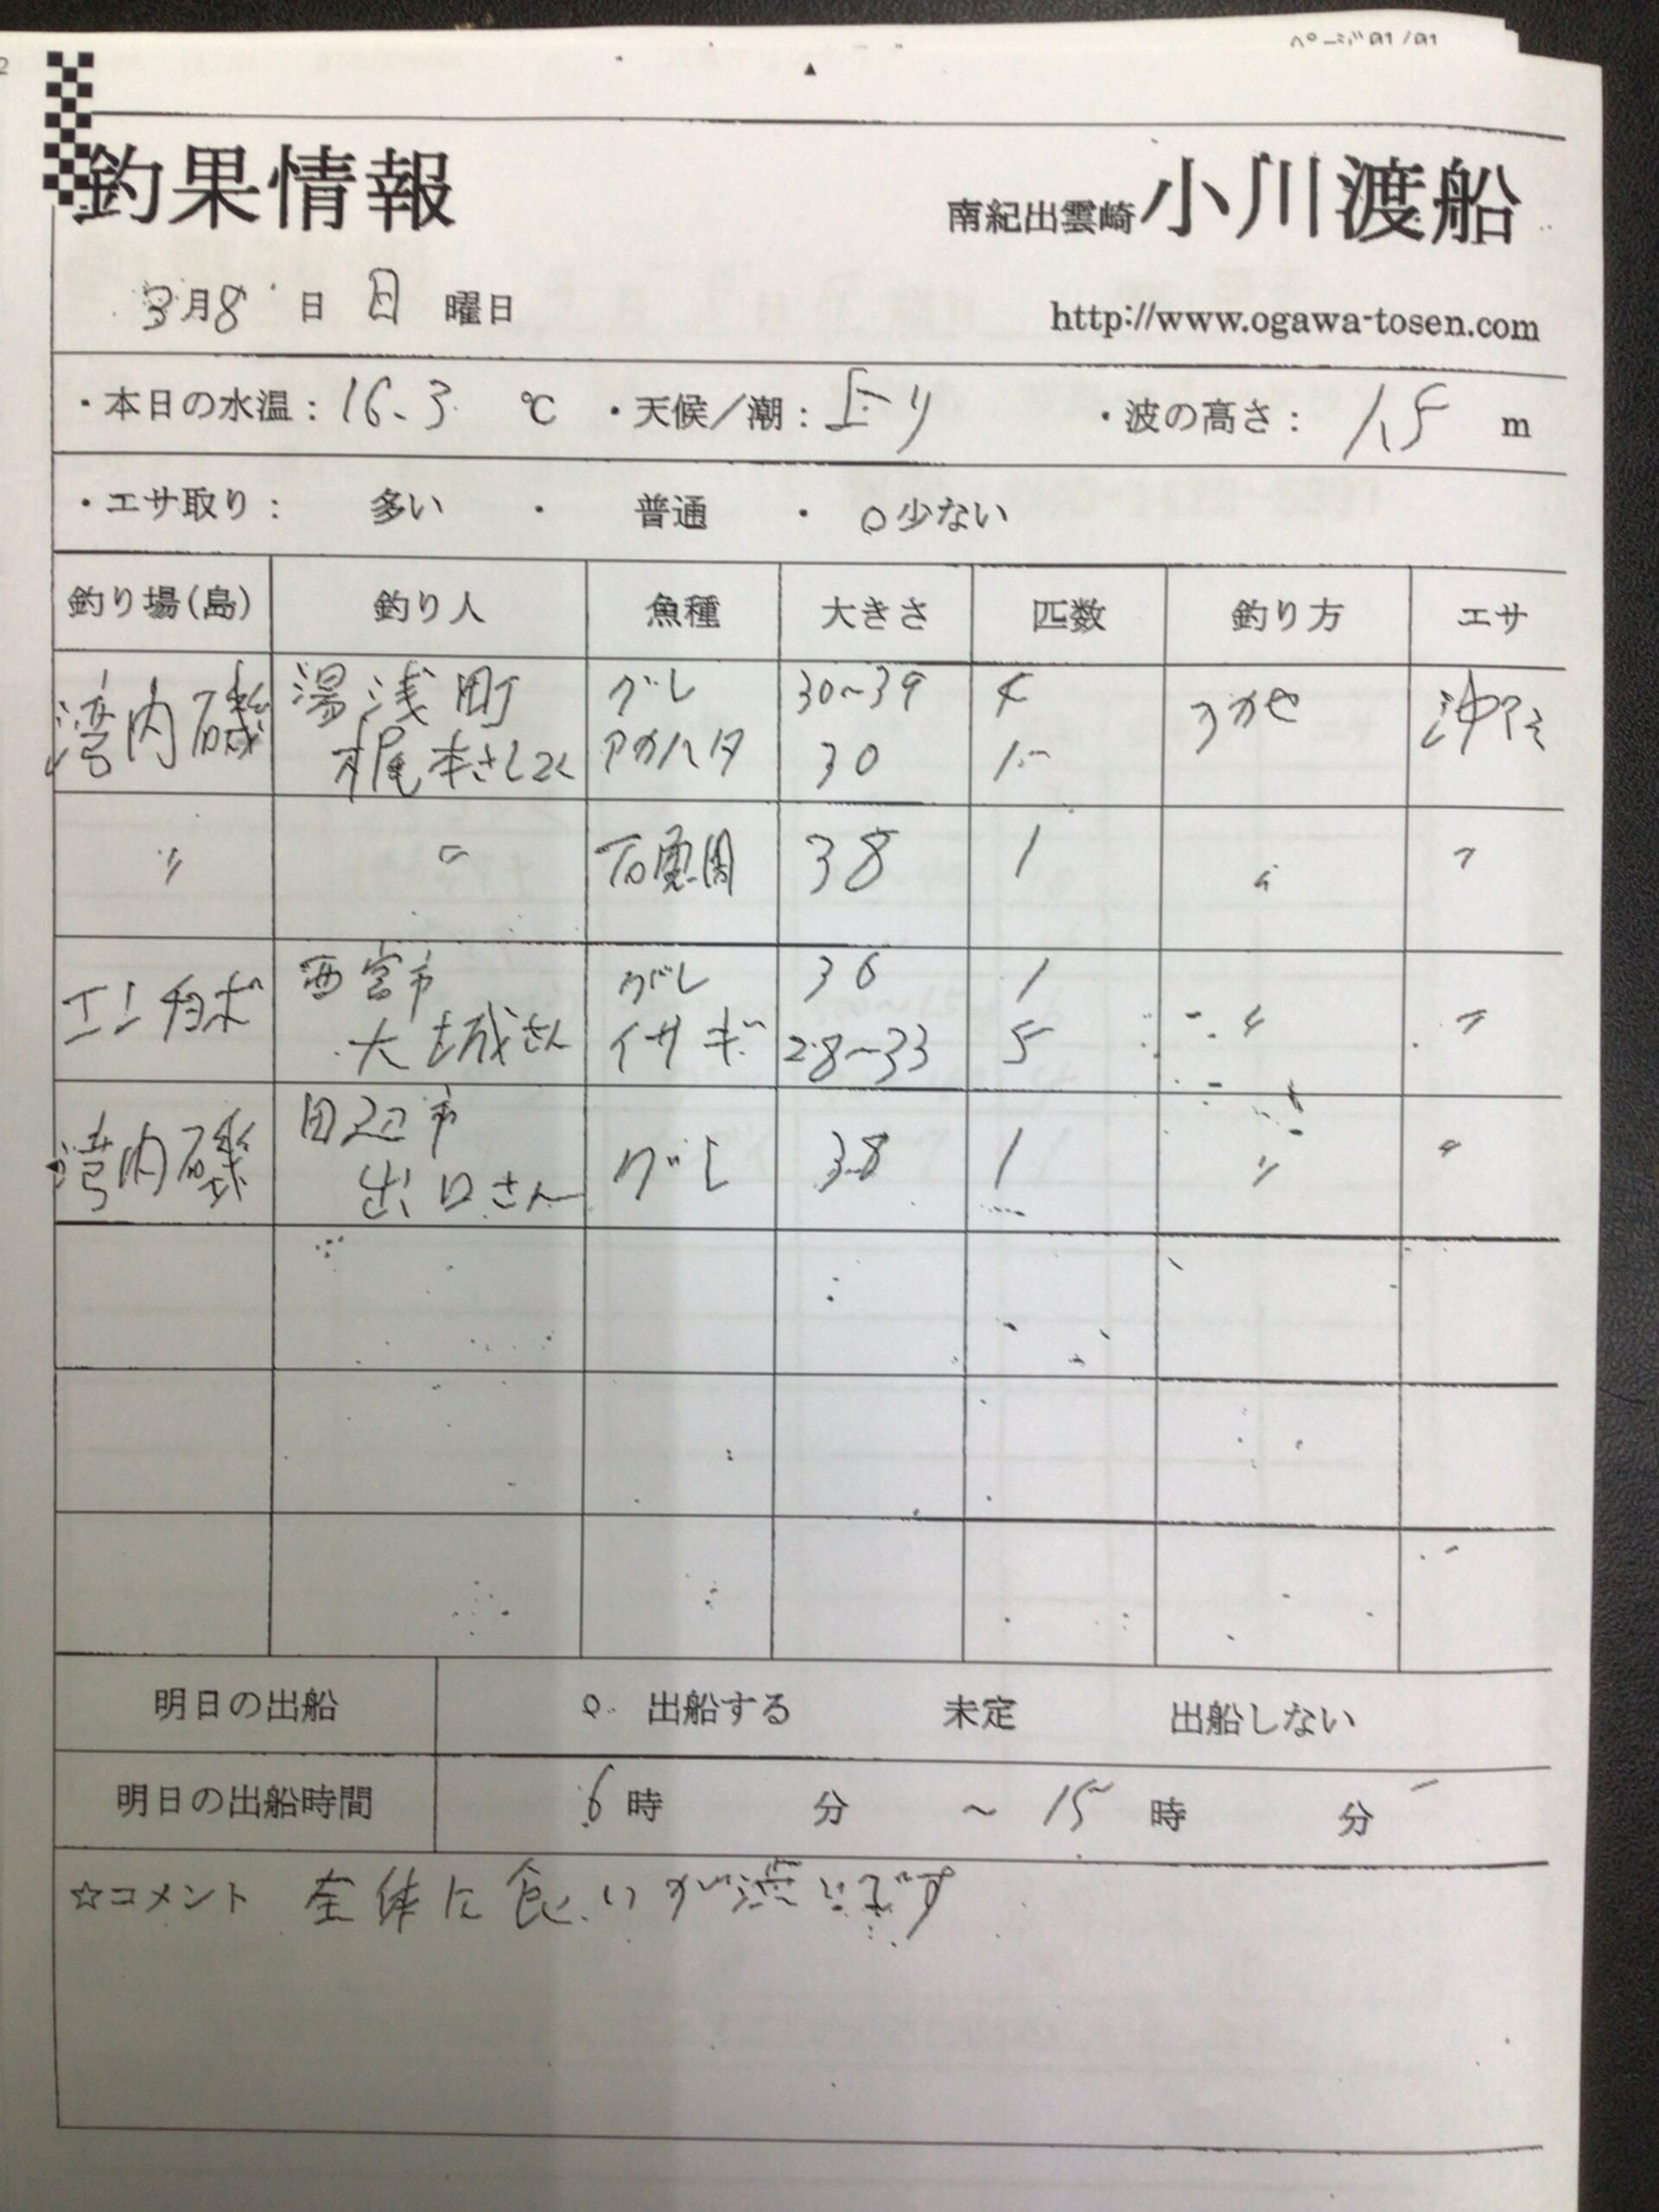 ページ 01/01
釣果情報
南紀出雲崎 小川渡船
3月8日 日 曜日
http://www.ogawa-tosen.com
・本日の水温：16.3 ℃ ・天候／潮： ・波の高さ： 1.5 m
・エサ取り： 多い ・ 普通 ・ ○少ない
釣り場(島) 釣り人 魚種 大きさ 匹数 釣り方 エサ
湾内磯 湯浅町 グレ 30～39 4 フカセ 沖アミ
梶本さん アカハタ 30 1
〃 〃 石鯛 38 1 〃 〃
エンチョボ 西宮市 グレ 36 1 〃 〃
大城さん イサギ 28～33 5
湾内磯 田辺市 グレ 38 1 〃 〃
出口さん
明日の出船 ○ 出船する 未定 出船しない
明日の出船時間 6時 分 ～ 15時 分
☆コメント 全体に食いが渋いです